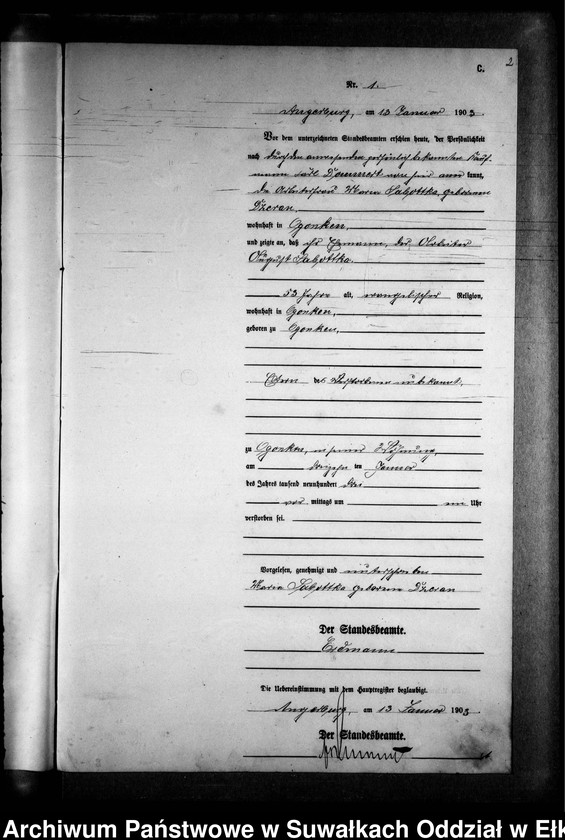 2
C.
Nr. 1.
Angerburg, am 13 Januar 1903.
Vor dem unterzeichneten Standesbeamten erschien heute, der Persönlichkeit
nach durch den anwesenden persönlich bekannten Kauf-
mann Carl anerkannt,
die Arbeiterfrau Maria Sabottka, geborene
Dzeran,
wohnhaft in Ogonken,
und zeigte an, daß ihr Ehemann, der Arbeiter
August Sabottka.
53 Jahre alt, evangelischer Religion,
wohnhaft in Ogonken,
geboren zu Ogonken,
Eltern des Verstorbenen unbekannt,
zu Ogonken, in seiner Wohnung,
am ten Januar
des Jahres tausend neunhundert drei
vor mittags um ein Uhr
verstorben sei.
Vorgelesen, genehmigt und unterschrieben
Maria Sabottka geborene Dzeran
Der Standesbeamte.
Erdmann
Die Uebereinstimmung mit dem Hauptregister beglaubigt.
Angerburg, am 13 Januar 1903
Der Standesbeamte.
Archiwum Państwowe w Suwałkach Oddział w Ełk